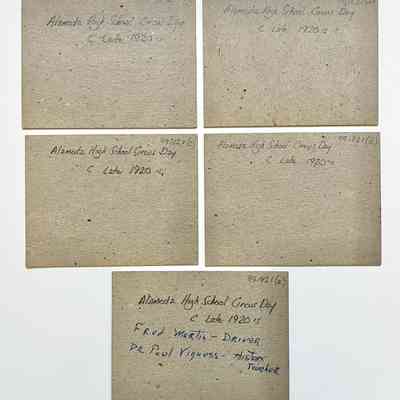 Alameda High School Circus Day
C Late 1920's
Alameda High School Circus Day
C Late 1920's
Alameda High School Circus Day
C Late 1920's
Alameda High School Circus Day
C Late 1920's
Alameda High School Circus Day
C Late 1920's
Fred Martin - Driver
Dr Paul - History
Teacher